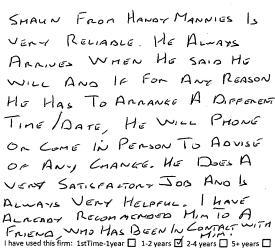 SHAUN FROM HANDYMANNIES IS
VERY RELIABLE. HE ALWAYS
ARRIVES WHEN HE SAID HE
WILL AND IF FOR ANY REASON
HE HAS TO ARRANGE A DIFFERENT
TIME/DATE, HE WILL PHONE
OR COME IN PERSON TO ADVISE
OF ANY CHANGE. HE DOES A
VERY SATISFACTORY JOB AND IS
ALWAYS VERY HELPFUL. I HAVE
ALREADY RECOMMENDED HIM TO A
FRIEND, WHO HAS BEEN IN CONTACT WITH
HIM!
I have used this firm: 1stTime-1year ☐ 1-2 years ☑ 2-4 years ☐ 5+ years ☐